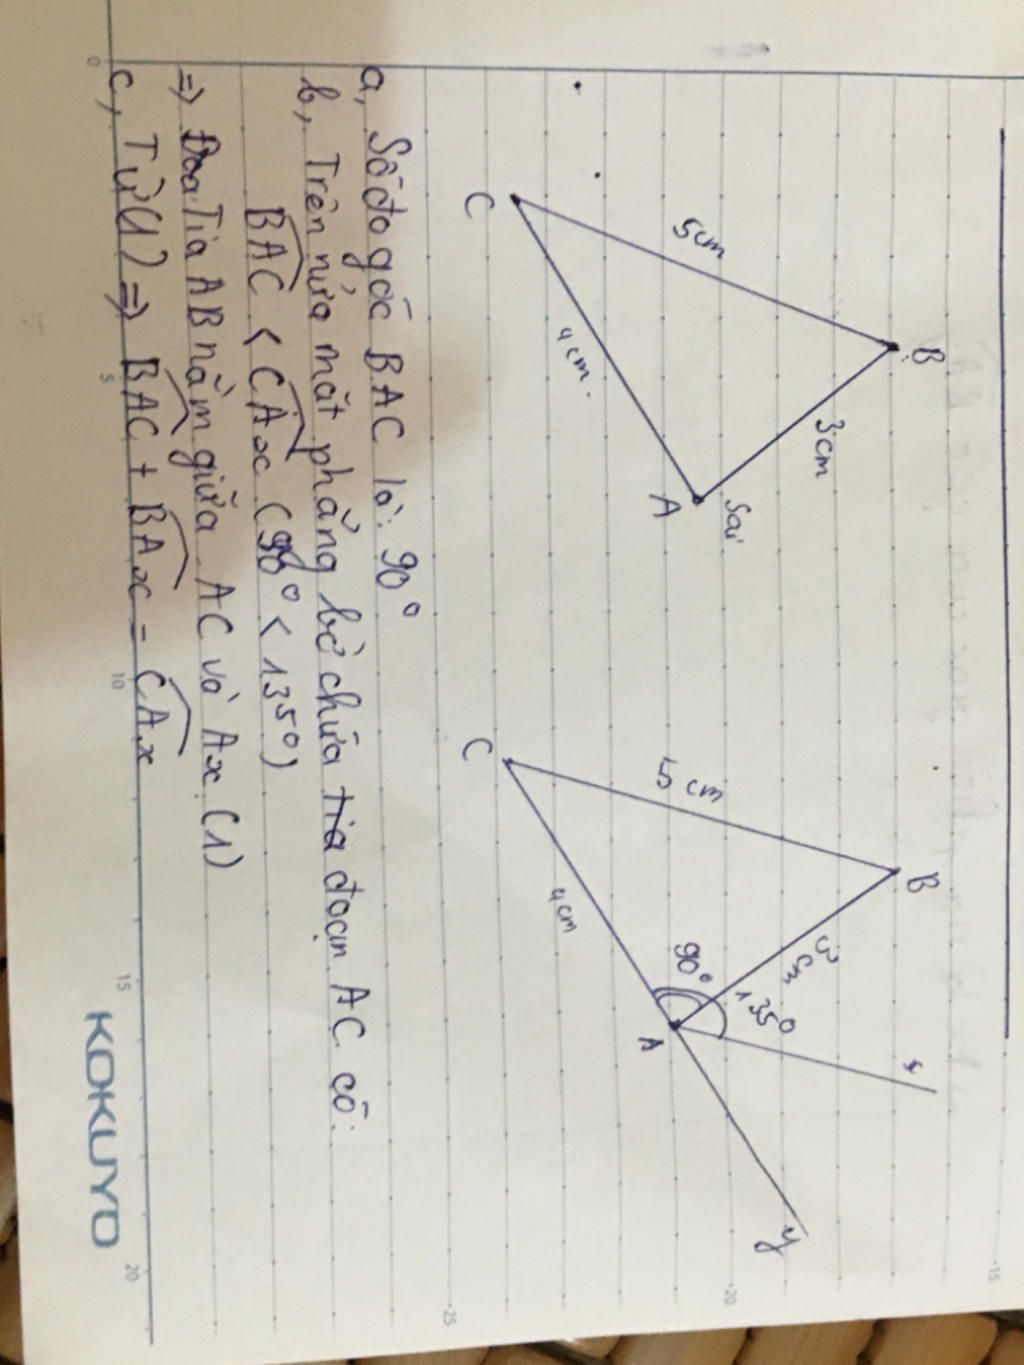 B
5cm
3cm
C
4cm.
A
Sai
B
5 cm
3 cm
C
4cm
90°
135°
A
x
y
a, Số đo góc BAC là: 90°
b, Trên nửa mặt phẳng bờ chứa tia đoạn AC có:
BAC < CAx (90° < 135°)
=> Tia AB nằm giữa AC và Ax (1)
c, Từ (1) => BAC + BAx = CAx
0
5
10
15
20
-15
-20
-25
KOKUYO